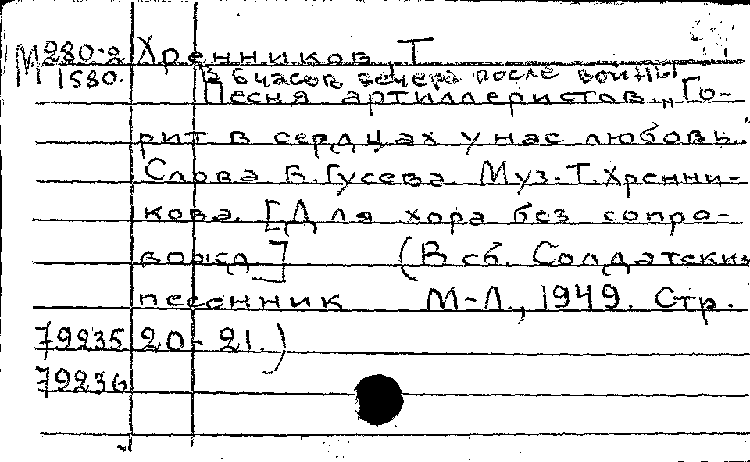 М 280-2 Хренников, Т
1580. В 6 часов вечера после войны
Песня артиллеристов. „Го-
рит в сердцах у нас любовь."
Слова В. Гусева. Муз. Т. Хренни-
кова. [Для хора без сопро-
вожд]   (В сб. Солдатский
песенник М-Л., 1949. Стр.
79235 20-21.)
79236